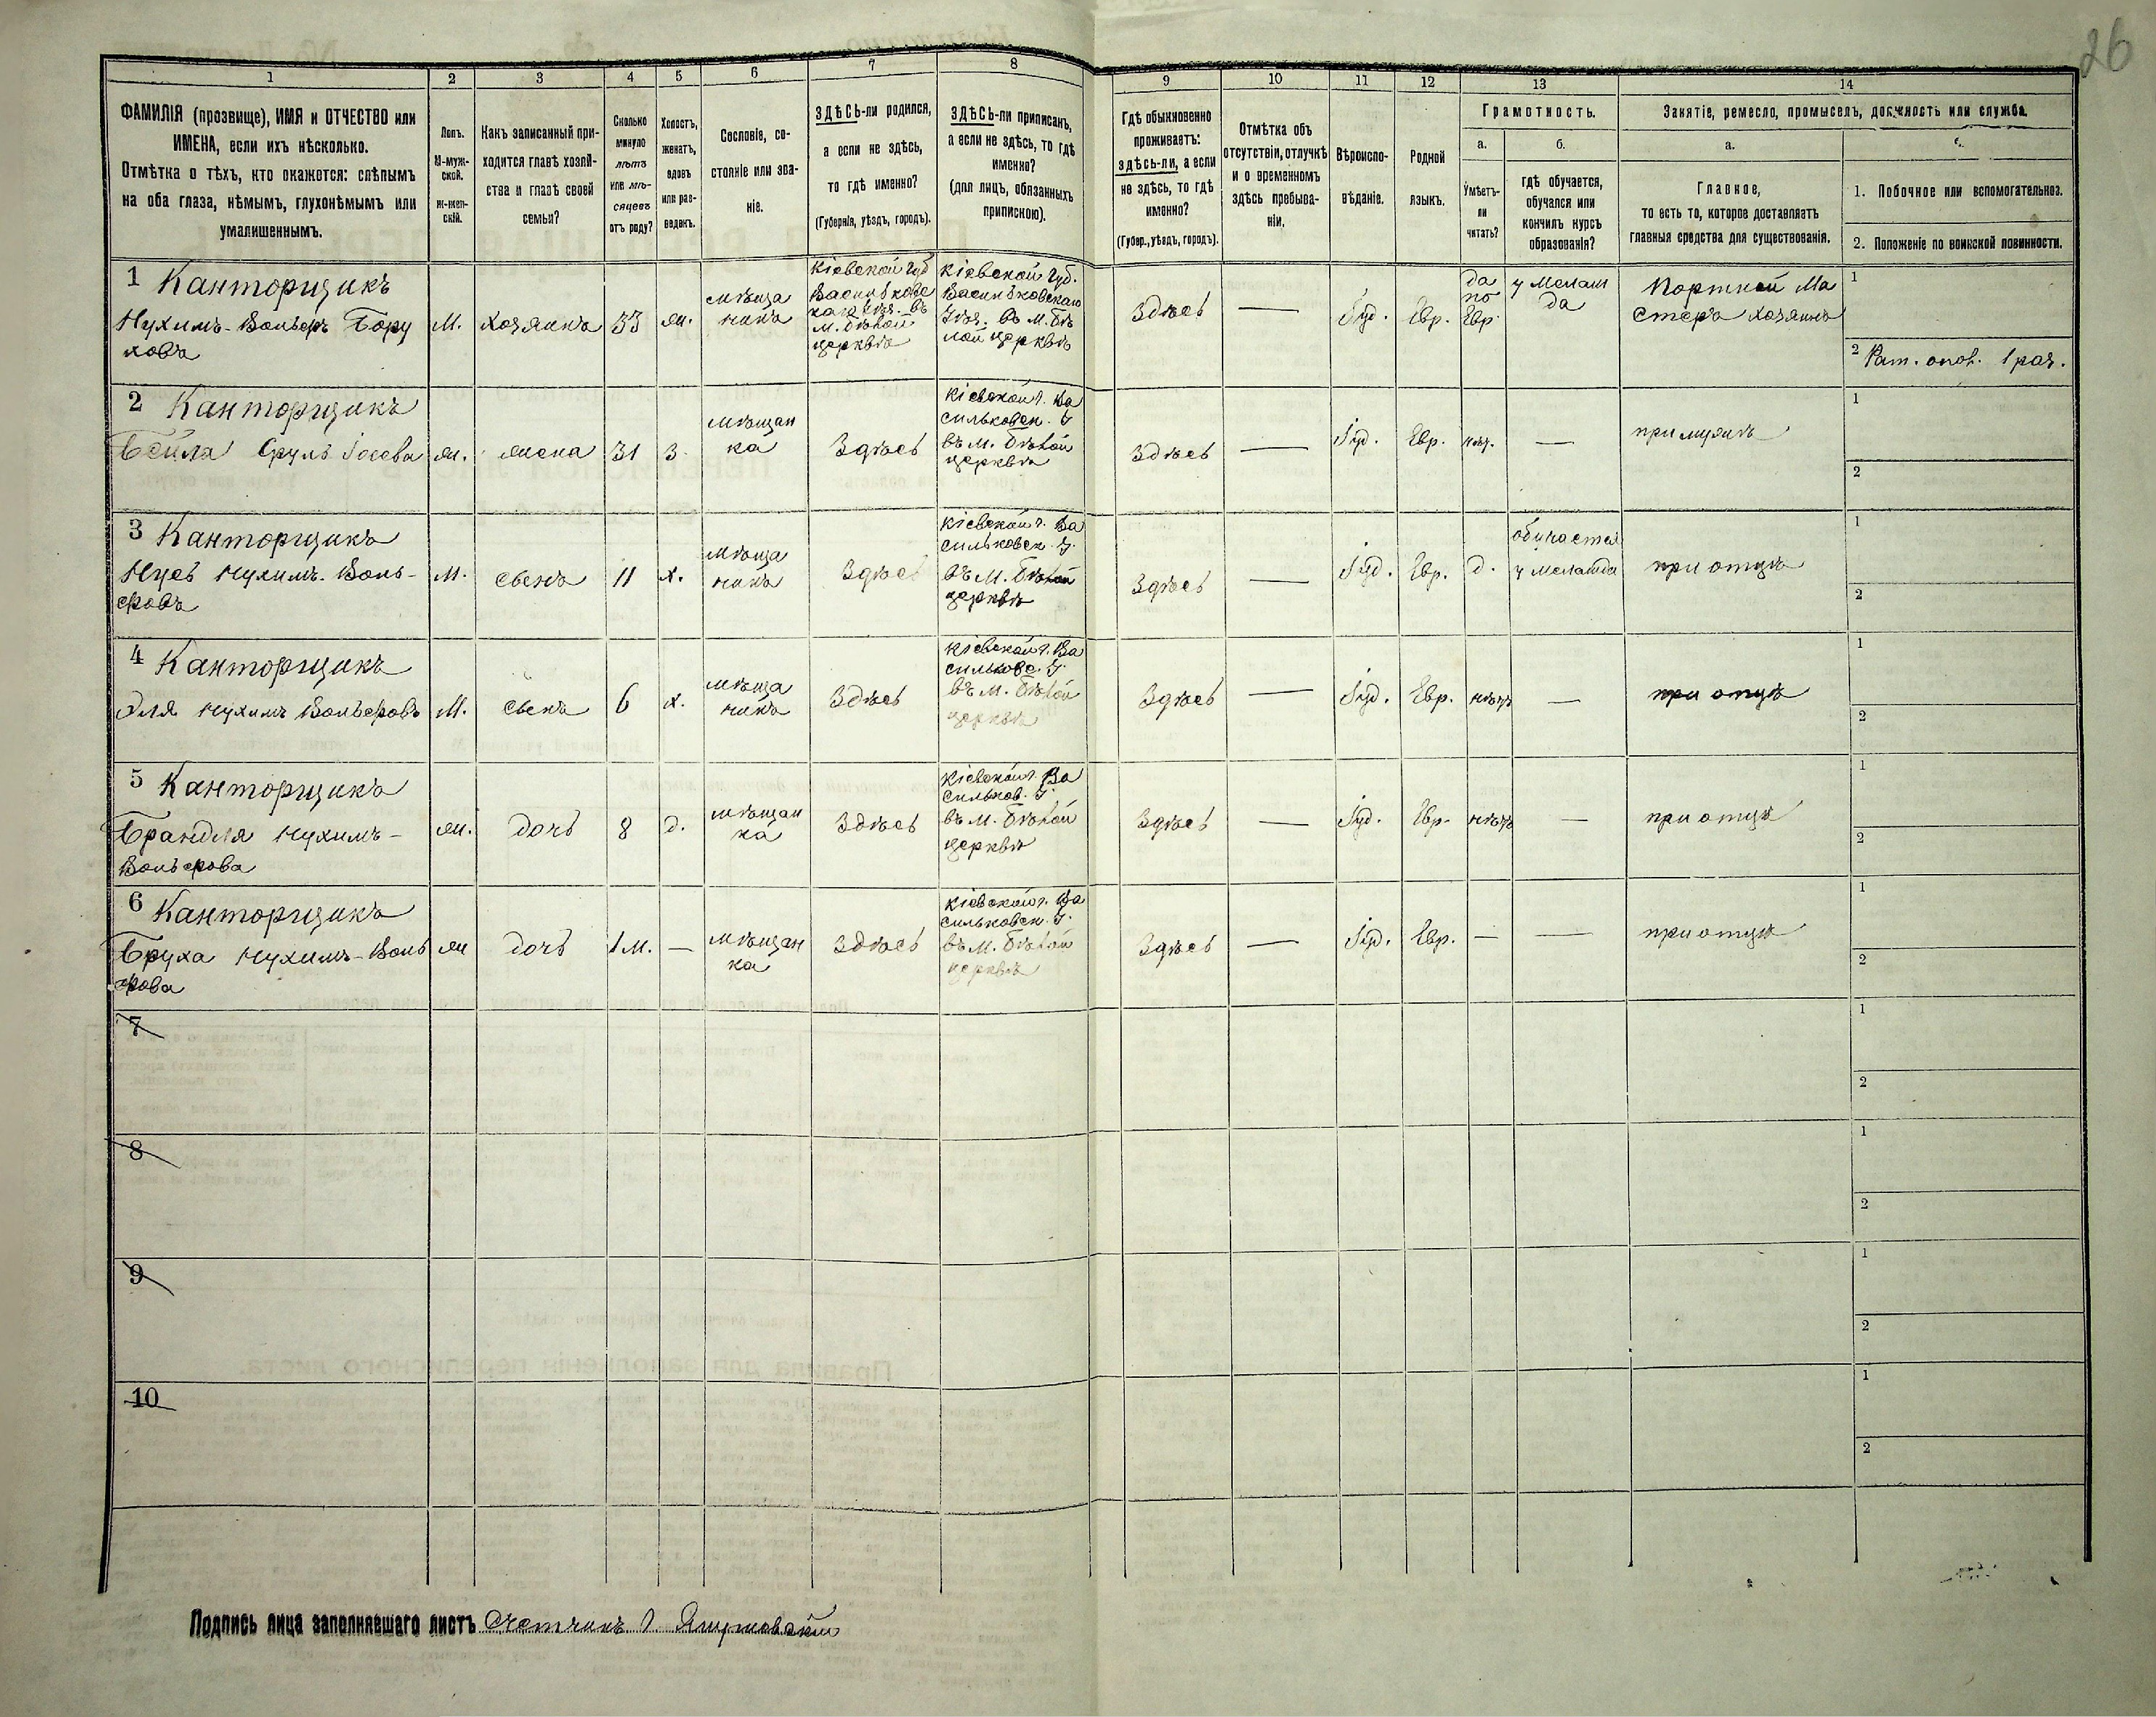 26
1
2
3
4
5
6
7
8
9
10
11
12
13
14
ФАМИЛІЯ (прозвище), ИМЯ и ОТЧЕСТВО или
ИМЕНА, если ихъ нѣсколько.
Отмѣтка о тѣхъ, кто окажется: слѣпымъ
на оба глаза, нѣмымъ, глухонѣмымъ или
умалишеннымъ.
Полъ.
М-муж-
ской.
Ж-жен-
скій.
Какъ записанный при-
ходится главѣ хозяй-
ства и главѣ своей
семьи?
Сколько
минуло
лѣтъ
или мѣ-
сяцевъ
отъ роду?
Холостъ,
женатъ,
вдовъ
или раз-
веденъ.
Сословіе, со-
стояніе или зва-
ніе.
ЗДѢСЬ-ли родился,
а если не здѣсь,
то гдѣ именно?
(Губернія, уѣздъ, городъ).
ЗДѢСЬ-ли приписанъ,
а если не здѣсь, то гдѣ
именно?
(для лицъ, обязанныхъ
припискою).
Гдѣ обыкновенно
проживаетъ:
здѣсь-ли, а если
не здѣсь, то гдѣ
именно?
(Губер., уѣздъ, городъ).
Отмѣтка объ
отсутствіи, отлучкѣ
и о временномъ
здѣсь пребыва-
ніи.
Вѣроиспо-
вѣданіе.
Родной
языкъ.
Грамотность.
а.
Умѣетъ-
ли
читать?
б.
гдѣ обучается,
обучался или
кончилъ курсъ
образованія?
Занятіе, ремесло, промыселъ, должность или служба.
а.
Главное,
то есть то, которое доставляетъ
главныя средства для существованія.
1. Побочное или вспомогательное.
2. Положеніе по воинской повинности.
1 Канторщикъ
Нухимъ-Вольфъ Бору
ховъ
М.
хозяинъ
33
жн.
мѣща
нинъ
Кіевской губ
Васильковс
каго уѣз. въ
м. Бѣлой
церквѣ
Кіевской губ.
Васильковскаго
Уѣз. въ м. Бѣ
лой церквѣ
Здѣсь
—
Іуд.
Евр.
да
по
Евр.
у мелам
да
Портной Ма
стеръ хозяинъ
1
2 Рат. опол. 1 раз.
2 Канторщикъ
Бейла Сруль Іосева
жн.
жена
31
З.
мѣщан
ка
Здѣсь
Кіевской г. Ва
сильковск. У
въ м. Бѣлой
церквѣ
Здѣсь
—
Іуд.
Евр.
нѣт.
—
при мужѣ
1
2
3 Канторщикъ
Нусь Нухимъ-Воль-
фовъ
М.
сынъ
11
х.
мѣща
нинъ
Здѣсь
Кіевской г. Ва
сильковск. У.
въ м. Бѣлой
церквѣ
Здѣсь
—
Іуд.
Евр.
д.
обучается
у меламда
при отцѣ
1
2
4 Канторщикъ
Эля Нухимъ Вольфовъ
М.
сынъ
6
х.
мѣща
нинъ
Здѣсь
Кіевской г. Ва
сильковс. У.
въ м. Бѣлой
церквѣ
Здѣсь
—
Іуд.
Евр.
нѣтъ
—
при отцѣ
1
2
5 Канторщикъ
Брандля Нухимъ-
Вольфова
жн.
дочь
8
д.
мѣщан
ка
Здѣсь
Кіевской г. Ва
сильков. У.
въ м. Бѣлой
церквѣ
Здѣсь
—
Іуд.
Евр.
нѣтъ
—
при отцѣ
1
2
6 Канторщикъ
Бруха Нухимъ-Воль
фова
жн
дочь
1 м.
—
мѣщан
ка
Здѣсь
Кіевской г. Ва
сильковск. У.
въ м. Бѣлой
церквѣ
Здѣсь
—
Іуд.
Евр.
—
—
при отцѣ
1
2
7
1
2
8
1
2
9
1
2
10
1
2
Подпись лица заполнявшаго листъ Счетчикъ